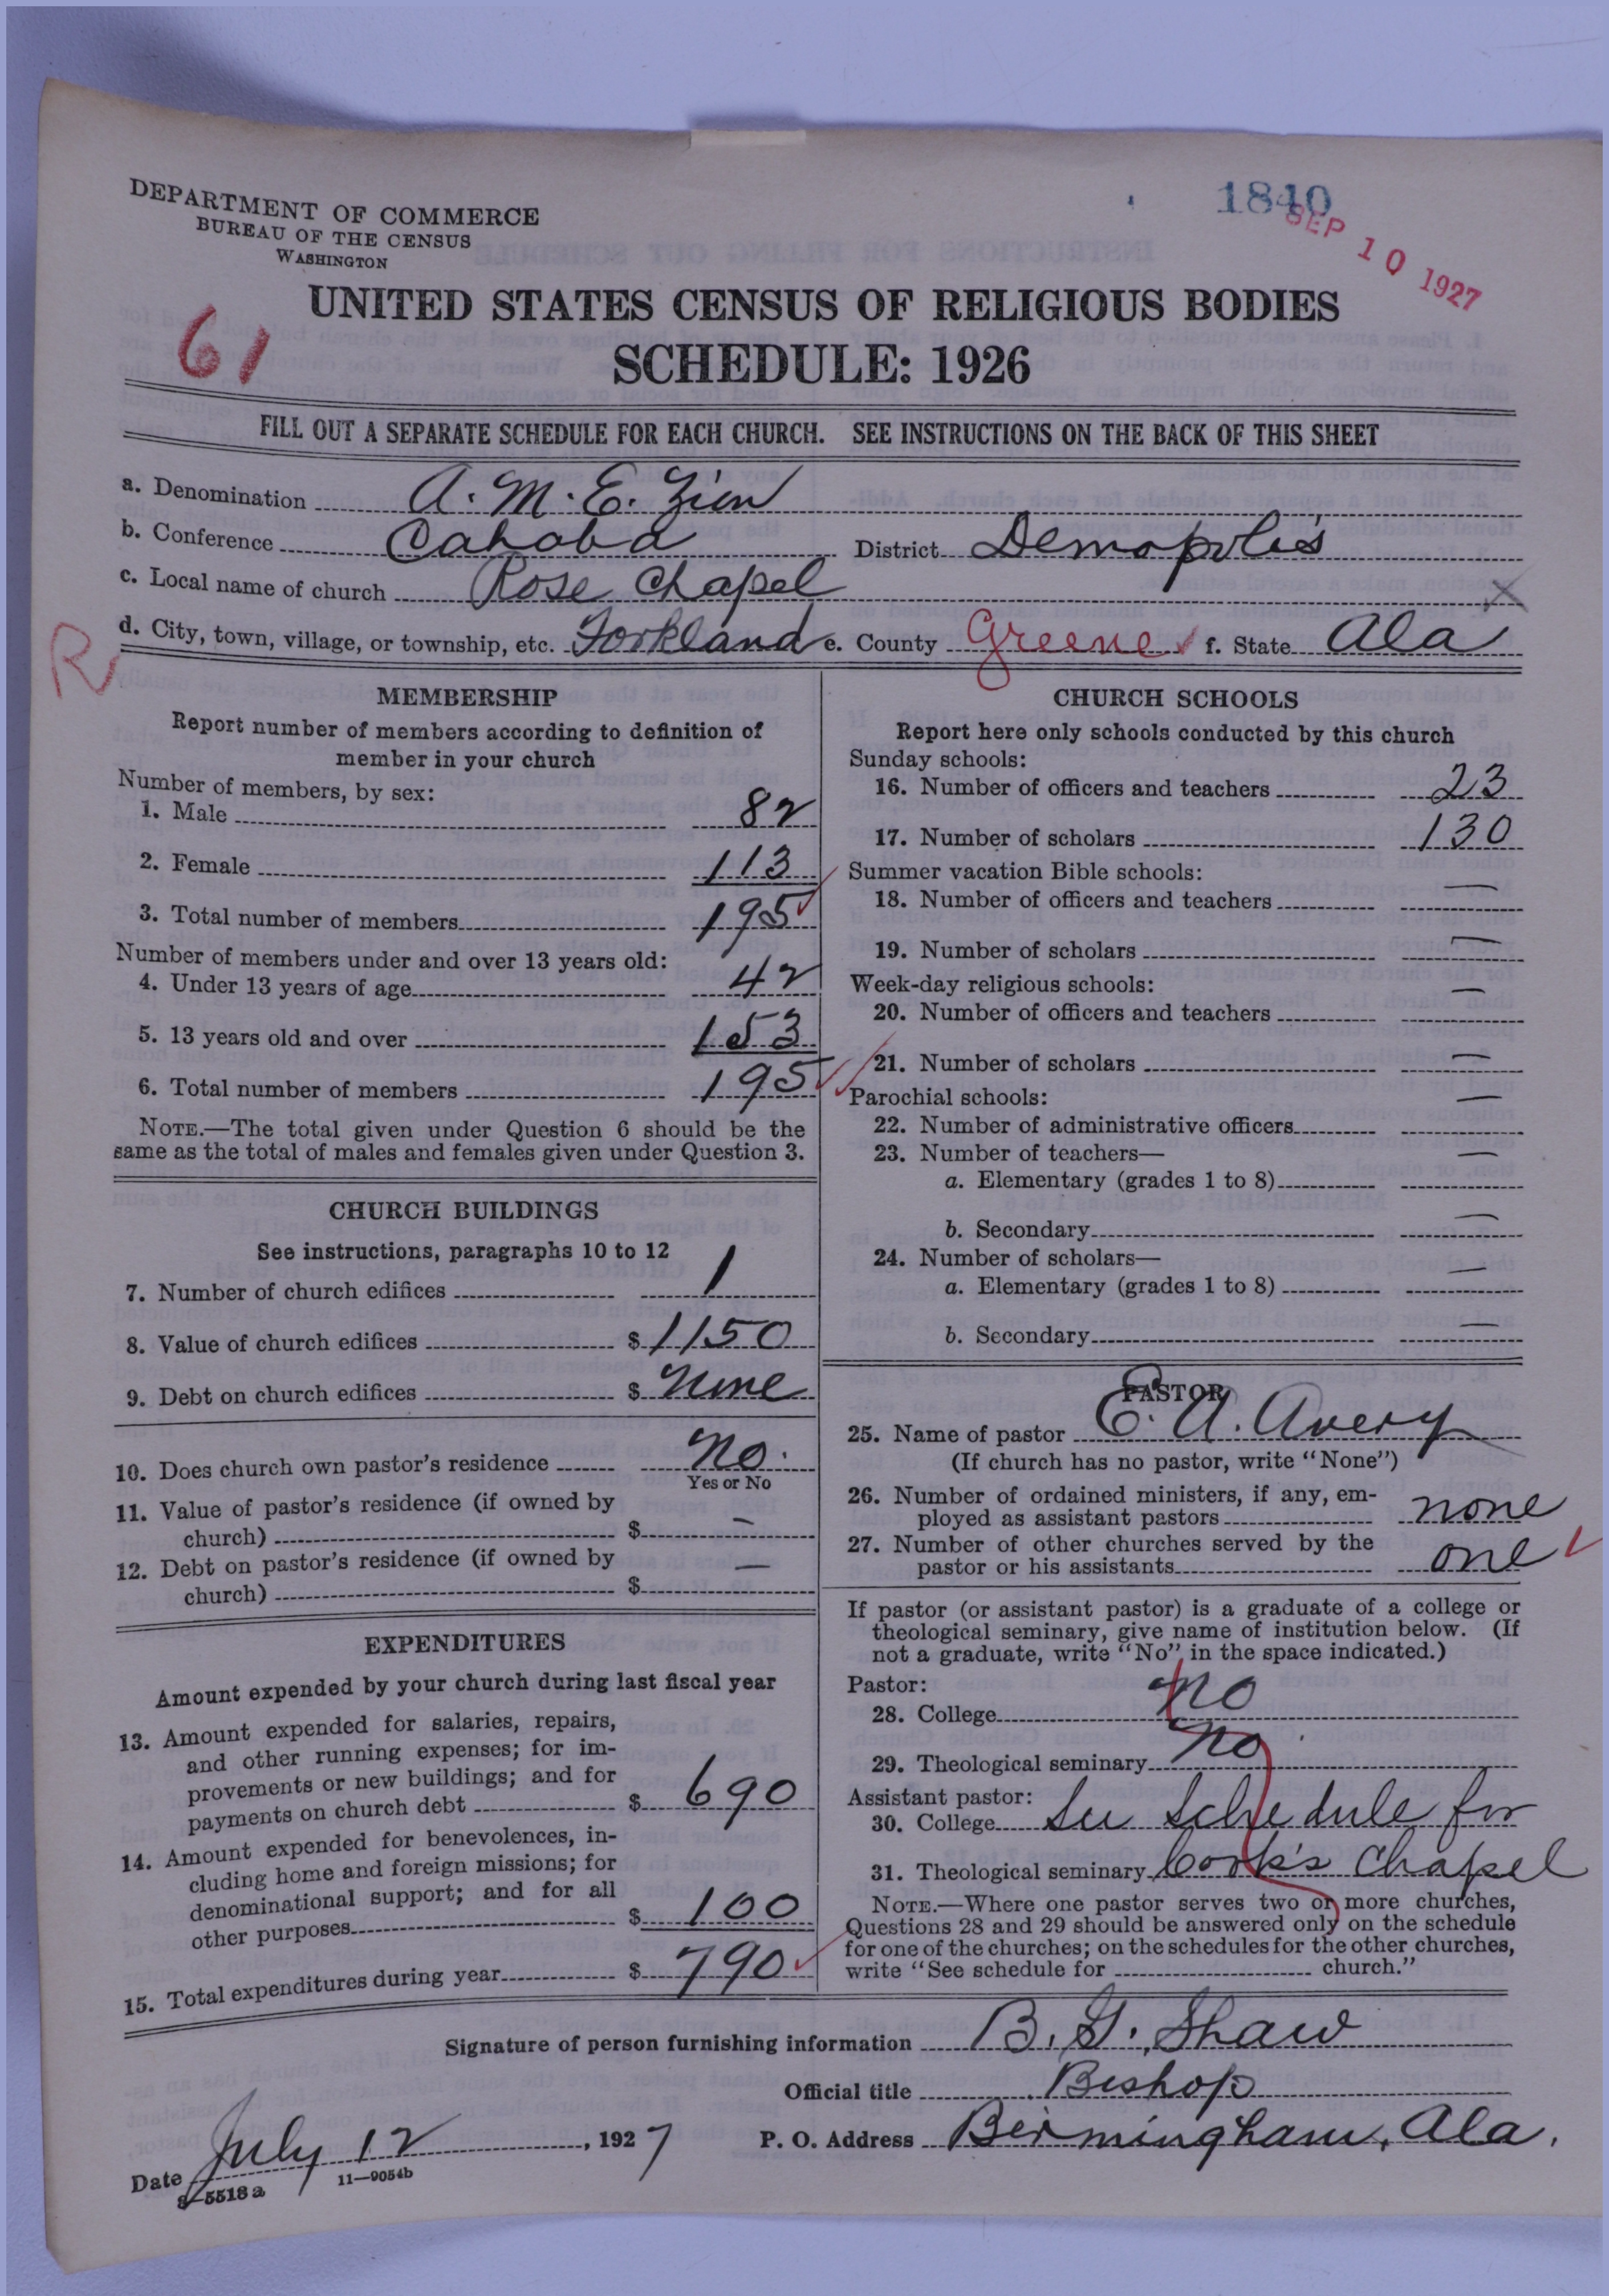 DEPARTMENT OF COMMERCE
BUREAU OF THE CENSUS
WASHINGTON
1840
SEP 10 1927
61
UNITED STATES CENSUS OF RELIGIOUS BODIES
SCHEDULE: 1926
FILL OUT A SEPARATE SCHEDULE FOR EACH CHURCH. SEE INSTRUCTIONS ON THE BACK OF THIS SHEET
a. Denomination A. M. E. Zion
b. Conference Cahaba District Demopolis
c. Local name of church Rose Chapel
d. City, town, village, or township, etc. Forkland e. County Greene f. State Ala
R
MEMBERSHIP
Report number of members according to definition of
member in your church
Number of members, by sex:
1. Male 82
2. Female 113
3. Total number of members 195
Number of members under and over 13 years old:
4. Under 13 years of age 42
5. 13 years old and over 153
6. Total number of members 195
NOTE.—The total given under Question 6 should be the
same as the total of males and females given under Question 3.
CHURCH BUILDINGS
See instructions, paragraphs 10 to 12
7. Number of church edifices 1
8. Value of church edifices $ 1150
9. Debt on church edifices $ None
10. Does church own pastor's residence No.
Yes or No
11. Value of pastor's residence (if owned by
church) $ —
12. Debt on pastor's residence (if owned by
church) $ —
EXPENDITURES
Amount expended by your church during last fiscal year
13. Amount expended for salaries, repairs,
and other running expenses; for im-
provements or new buildings; and for
payments on church debt $ 690
14. Amount expended for benevolences, in-
cluding home and foreign missions; for
denominational support; and for all
other purposes $ 100
15. Total expenditures during year $ 790
CHURCH SCHOOLS
Report here only schools conducted by this church
Sunday schools:
16. Number of officers and teachers 23
17. Number of scholars 130
Summer vacation Bible schools:
18. Number of officers and teachers —
19. Number of scholars —
Week-day religious schools:
20. Number of officers and teachers —
21. Number of scholars —
Parochial schools:
22. Number of administrative officers —
23. Number of teachers—
a. Elementary (grades 1 to 8) —
b. Secondary —
24. Number of scholars—
a. Elementary (grades 1 to 8) —
b. Secondary —
PASTOR
25. Name of pastor E. A. Avery
(If church has no pastor, write "None")
26. Number of ordained ministers, if any, em-
ployed as assistant pastors none
27. Number of other churches served by the
pastor or his assistants one
If pastor (or assistant pastor) is a graduate of a college or
theological seminary, give name of institution below. (If
not a graduate, write "No" in the space indicated.)
Pastor:
28. College no
29. Theological seminary no
Assistant pastor:
30. College See schedule for
31. Theological seminary Cook's Chapel
NOTE.—Where one pastor serves two or more churches,
Questions 28 and 29 should be answered only on the schedule
for one of the churches; on the schedules for the other churches,
write "See schedule for church."
Signature of person furnishing information B. G. Shaw
Official title Bishop
Date July 12, 1927 P. O. Address Birmingham, Ala.
8—5518 a 11—9054b